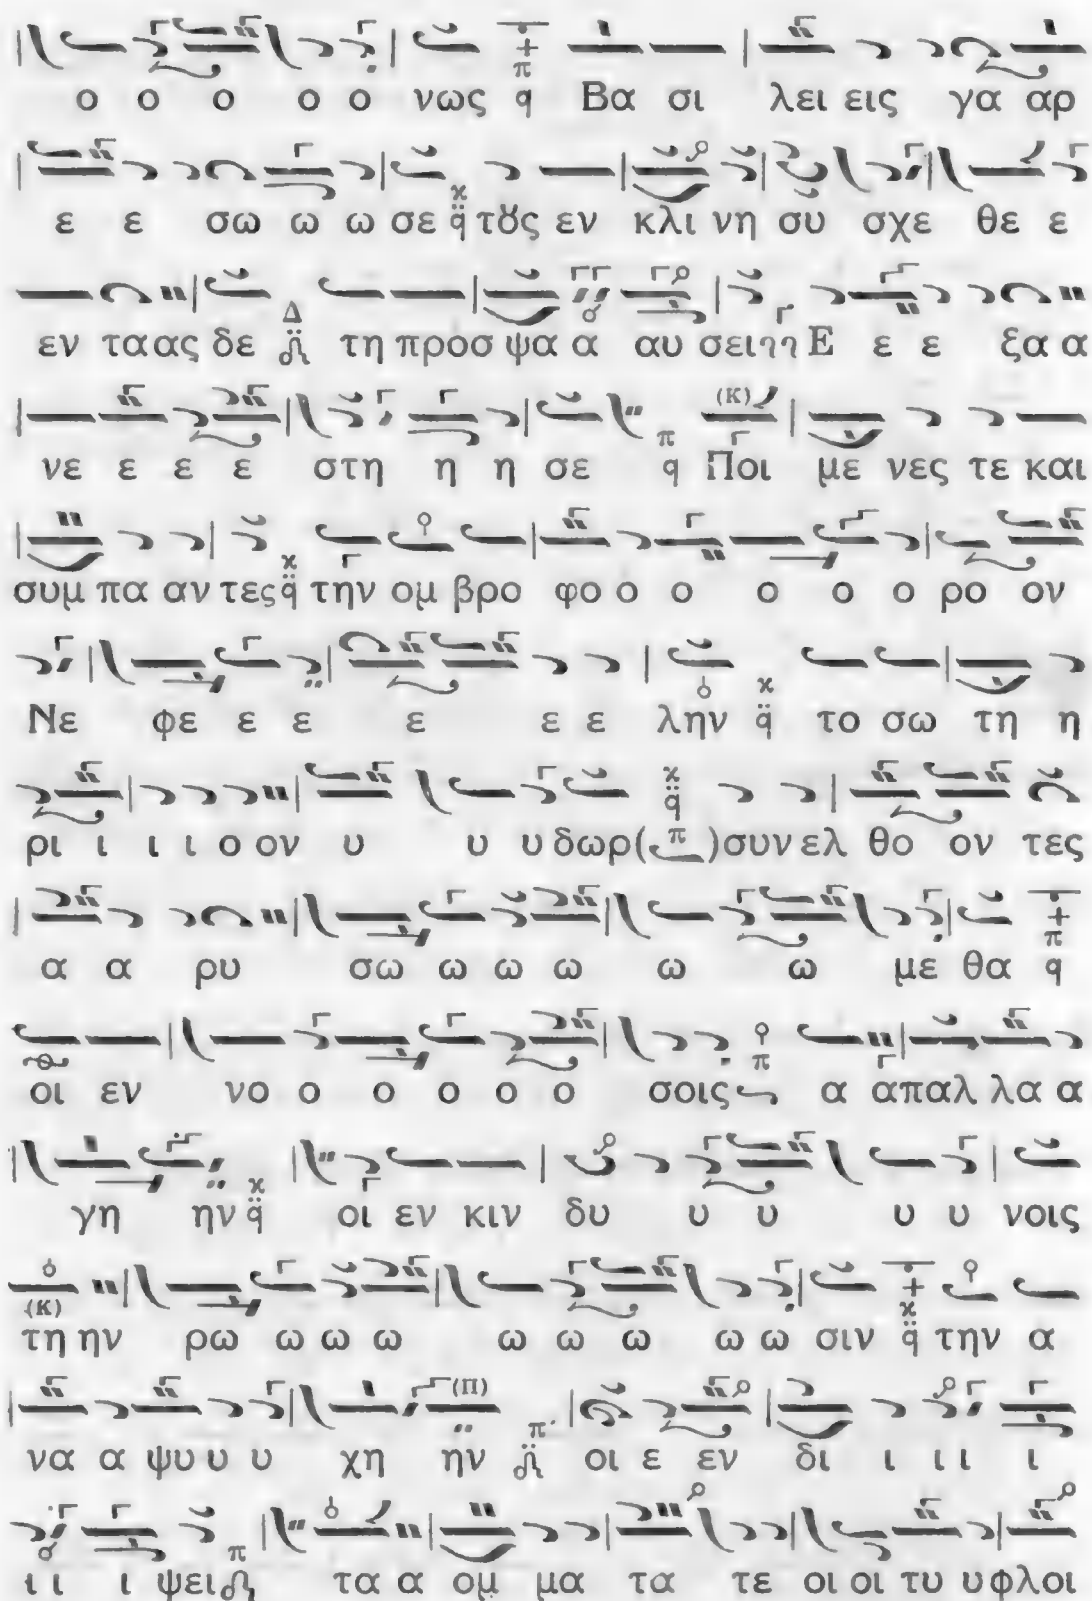 ο ο ο ο ο νως q Βα σι λει εις γα αρ
ε ε σω ω ω σε q τȣς εν κλι νη συ σχε θε ε
εν ταας δε Δ τη προσ ψαα α αυ σει Ε ε ε ξαα α
νε ε ε ε στη η η σε π q (Κ) Ποι με νες τε και
συμ πα αν τες q την ομ βρο φο ο ο ο ο ο ρο ον
Νε φε ε ε ε ε ε λην q το σω τη η
ρι ι ι ι ο ον υ υ υ δωρ (π) συν ελ θο ον τες
α α ρυ σω ω ω ω ω ω με θα π q
οι εν νο ο ο ο ο ο σοις π α απαλ λα α
γη ην q οι εν κιν δυ υ υ υ υ νοις
(Κ) τη ην ρω ω ω ω ω ω ω ω ω σιν q την α
να α ψυ υ υ χη (Π) ην π οι ε εν δι ι ι ι ι
ι ι ι ψει π τα α ομ μα τα τε οι οι τυ υφλοι